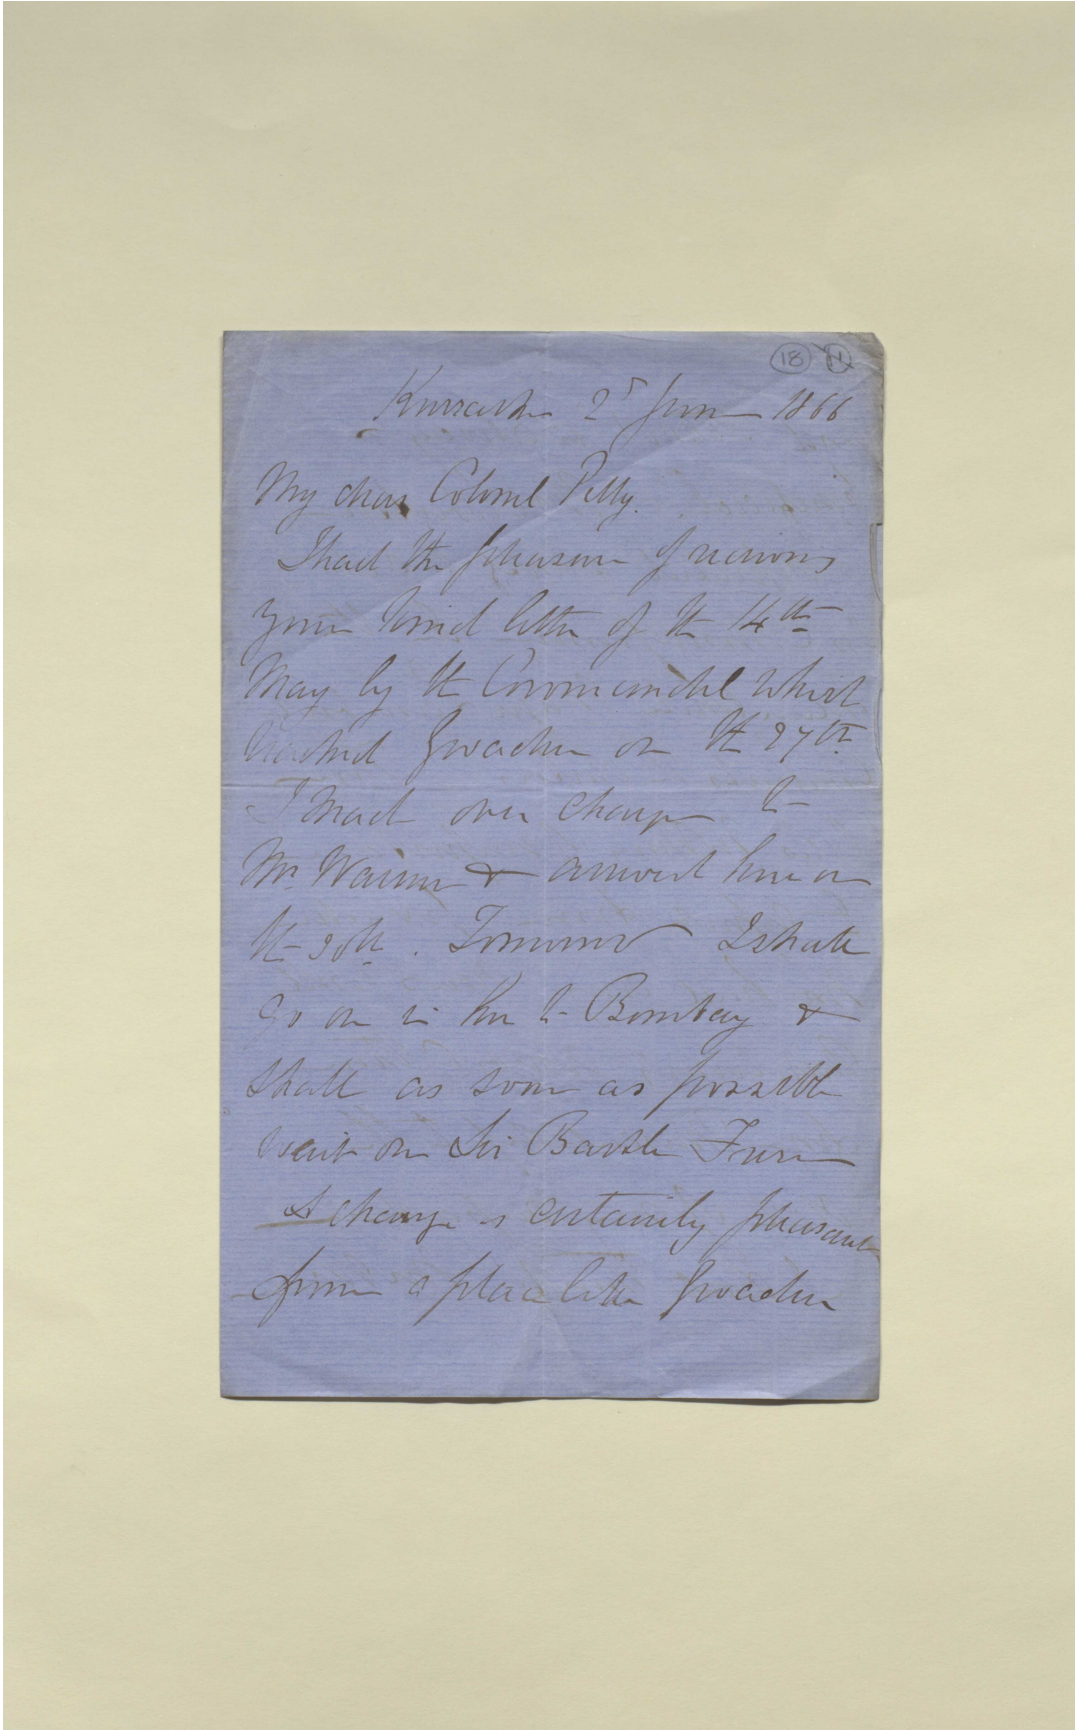 18 11
Kurrachee 2d June 1866
My dear Colonel Pelly.
I had the pleasure of receiving
your kind letter of the 14th
May by the Coromandel which
reached Gwadur on the 27th
I made over charge to
Mr. & arrived here on
the 30th. Tomorrow I shall
go on in her to Bombay &
shall as soon as possible
wait on Sir Bartle Frere
A change is certainly pleasant
from a place like Gwadur